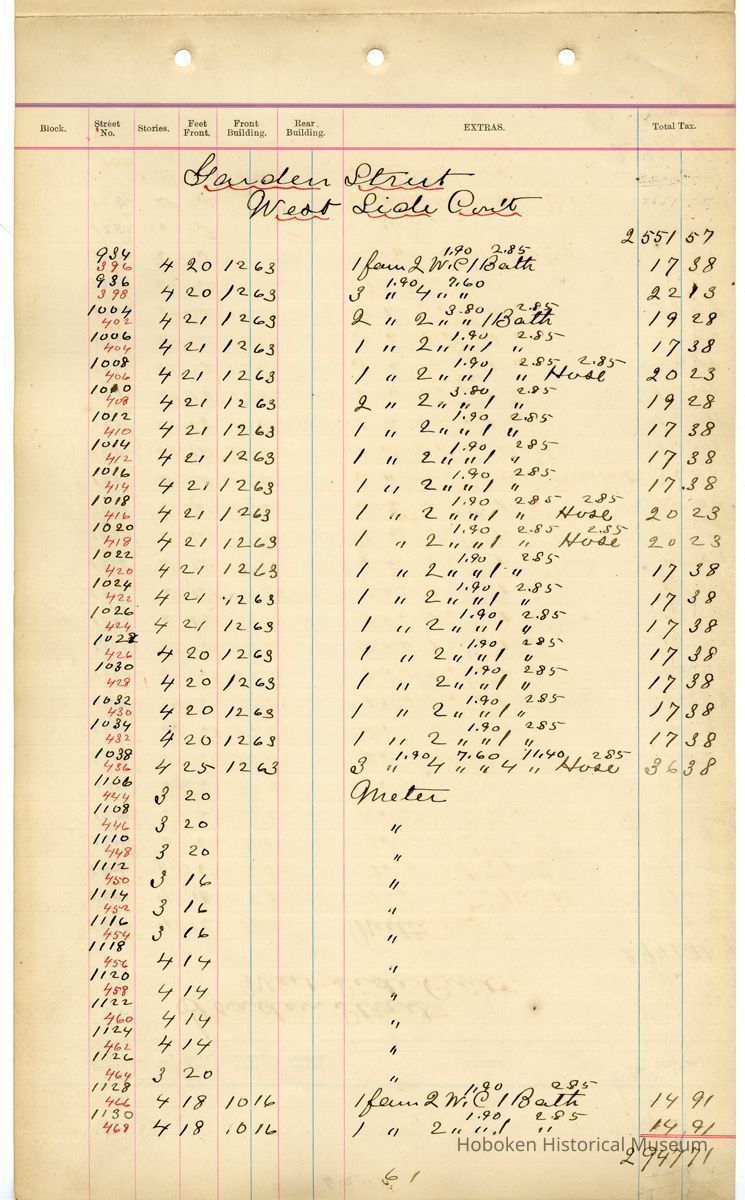 Block. Street No. Stories. Feet Front. Front Building. Rear Building. EXTRAS. Total Tax.
Garden Street
West Side Con't
2551 57
934 1.90 2.85
396 4 20 1263 1 fam 2 W.C 1 Bath 17 38
936 1.90 7.60
398 4 20 1263 3 " 4 " " 22 13
1004 3.80 2.85
402 4 21 1263 2 " 2 " " 1 Bath 19 28
1006 1.90 2.85
404 4 21 1263 1 " 2 " " 1 " 17 38
1008 1.90 2.85 2.85
406 4 21 1263 1 " 2 " " 1 " Hose 20 23
1010 3.80 2.85
408 4 21 1263 2 " 2 " " 1 " 19 28
1012 1.90 2.85
410 4 21 1263 1 " 2 " " 1 " 17 38
1014 1.90 2.85
412 4 21 1263 1 " 2 " " 1 " 17 38
1016 1.90 2.85
414 4 21 1263 1 " 2 " " 1 " 17.38
1018 1.90 2.85 2.85
416 4 21 1263 1 " 2 " " 1 " Hose 20 23
1020 1.90 2.85 2.85
418 4 21 1263 1 " 2 " " 1 " Hose 20 23
1022 1.90 2.85
420 4 21 1263 1 " 2 " " 1 " 17 38
1024 1.90 2.85
422 4 21 1263 1 " 2 " " 1 " 17 38
1026 1.90 2.85
424 4 21 1263 1 " 2 " " 1 " 17 38
1028 1.90 2.85
426 4 20 1263 1 " 2 " " 1 " 17 38
1030 1.90 2.85
428 4 20 1263 1 " 2 " " 1 " 17 38
1032 1.90 2.85
430 4 20 1263 1 " 2 " " 1 " 17 38
1034 1.90 2.85
432 4 20 1263 1 " 2 " " 1 " 17 38
1038 1.90 7.60 11.40 2.85
436 4 25 1263 3 " 4 " " 4 " Hose 36 38
1106
444 3 20 Meter
1108
446 3 20 "
1110
448 3 20 "
1112
450 3 16 "
1114
452 3 16 "
1116
454 3 16 "
1118
456 4 14 "
1120
458 4 14 "
1122
460 4 14 "
1124
462 4 14 "
1126
464 3 20 "
1128 1.90 2.85
466 4 18 1016 1 fam 2 W.C 1 Bath 14 91
1130 1.90 2.85
468 4 18 1016 1 " 2 " " 1 " 14.91
Hoboken Historical Museum
2947 71
61